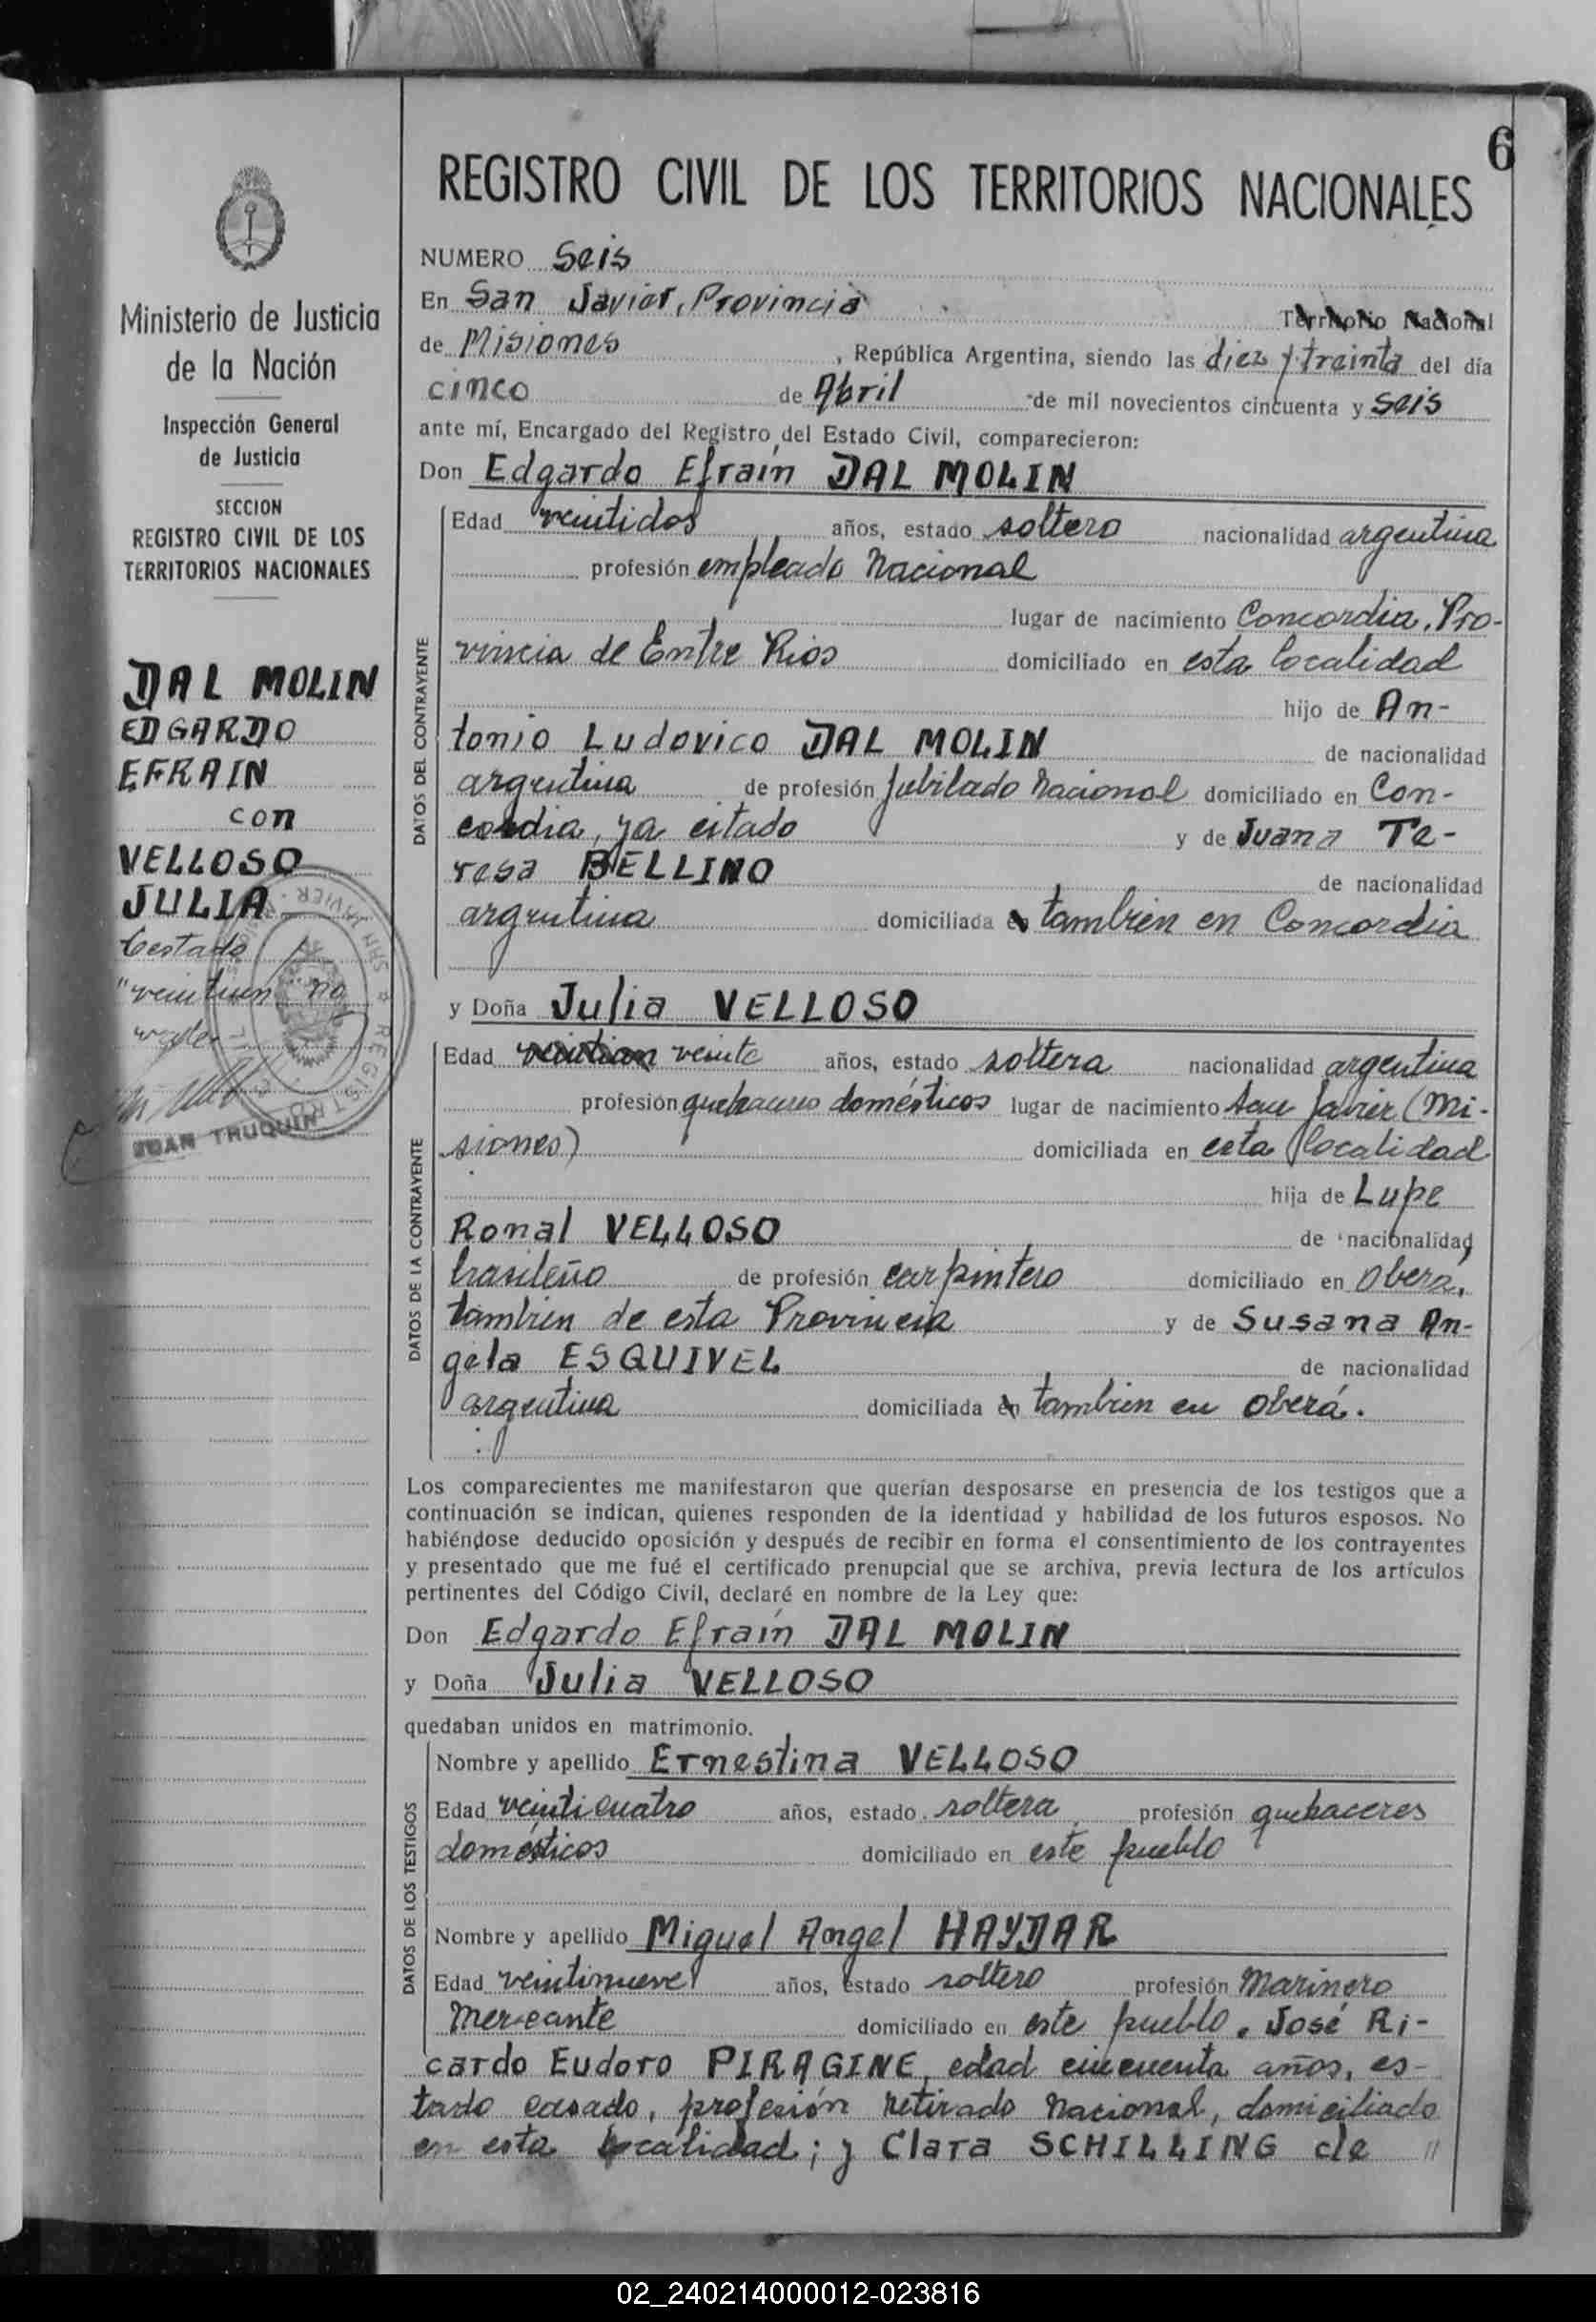 6
REGISTRO CIVIL DE LOS TERRITORIOS NACIONALES
Ministerio de Justicia
de la Nación
Inspección General
de Justicia
SECCION
REGISTRO CIVIL DE LOS
TERRITORIOS NACIONALES
DAL MOLIN
EDGARDO
EFRAIN
con
VELLOSO
JULIA
Testado
"veintiun" no
vale
JUAN TRUQUIN
NUMERO Seis
En San Javier, Provincia Territorio Nacional
de Misiones, República Argentina, siendo las diez y treinta del día
cinco de Abril de mil novecientos cincuenta y seis
ante mí, Encargado del Registro del Estado Civil, comparecieron:
Don Edgardo Efraín DAL MOLIN
DATOS DEL CONTRAYENTE
Edad veintidos años, estado soltero nacionalidad argentina
profesión empleado Nacional
lugar de nacimiento Concordia, Pro-
vincia de Entre Rios domiciliado en esta localidad
hijo de An-
tonio Ludovico DAL MOLIN de nacionalidad
argentina de profesión Jubilado Nacional domiciliado en Con-
cordia, ya citado y de Juana Te-
resa BELLINO de nacionalidad
argentina domiciliada en tambien en Concordia
y Doña Julia VELLOSO
DATOS DE LA CONTRAYENTE
Edad veintiun veinte años, estado soltera nacionalidad argentina
profesión quehaceres domésticos lugar de nacimiento San Javier (Mi-
siones) domiciliada en esta localidad
hija de Lupe
Ronal VELLOSO de nacionalidad
brasileño de profesión carpintero domiciliado en Oberá,
tambien de esta Provincia y de Susana An-
gela ESQUIVEL de nacionalidad
argentina domiciliada en tambien en Oberá.
Los comparecientes me manifestaron que querían desposarse en presencia de los testigos que a
continuación se indican, quienes responden de la identidad y habilidad de los futuros esposos. No
habiéndose deducido oposición y después de recibir en forma el consentimiento de los contrayentes
y presentado que me fué el certificado prenupcial que se archiva, previa lectura de los artículos
pertinentes del Código Civil, declaré en nombre de la Ley que:
Don Edgardo Efraín DAL MOLIN
y Doña Julia VELLOSO
quedaban unidos en matrimonio.
DATOS DE LOS TESTIGOS
Nombre y apellido Ernestina VELLOSO
Edad veinticuatro años, estado soltera profesión quehaceres
domésticos domiciliado en este pueblo
Nombre y apellido Miguel Angel HAYDAR
Edad veintinueve años, estado soltero profesión Marinero
Mercante domiciliado en este pueblo. José Ri-
cardo Eudoro PIRAGINE, edad cincuenta años, es-
tado casado, profesión retirado Nacional, domiciliado
en esta localidad; y Clara SCHILLING de //
02_240214000012-023816